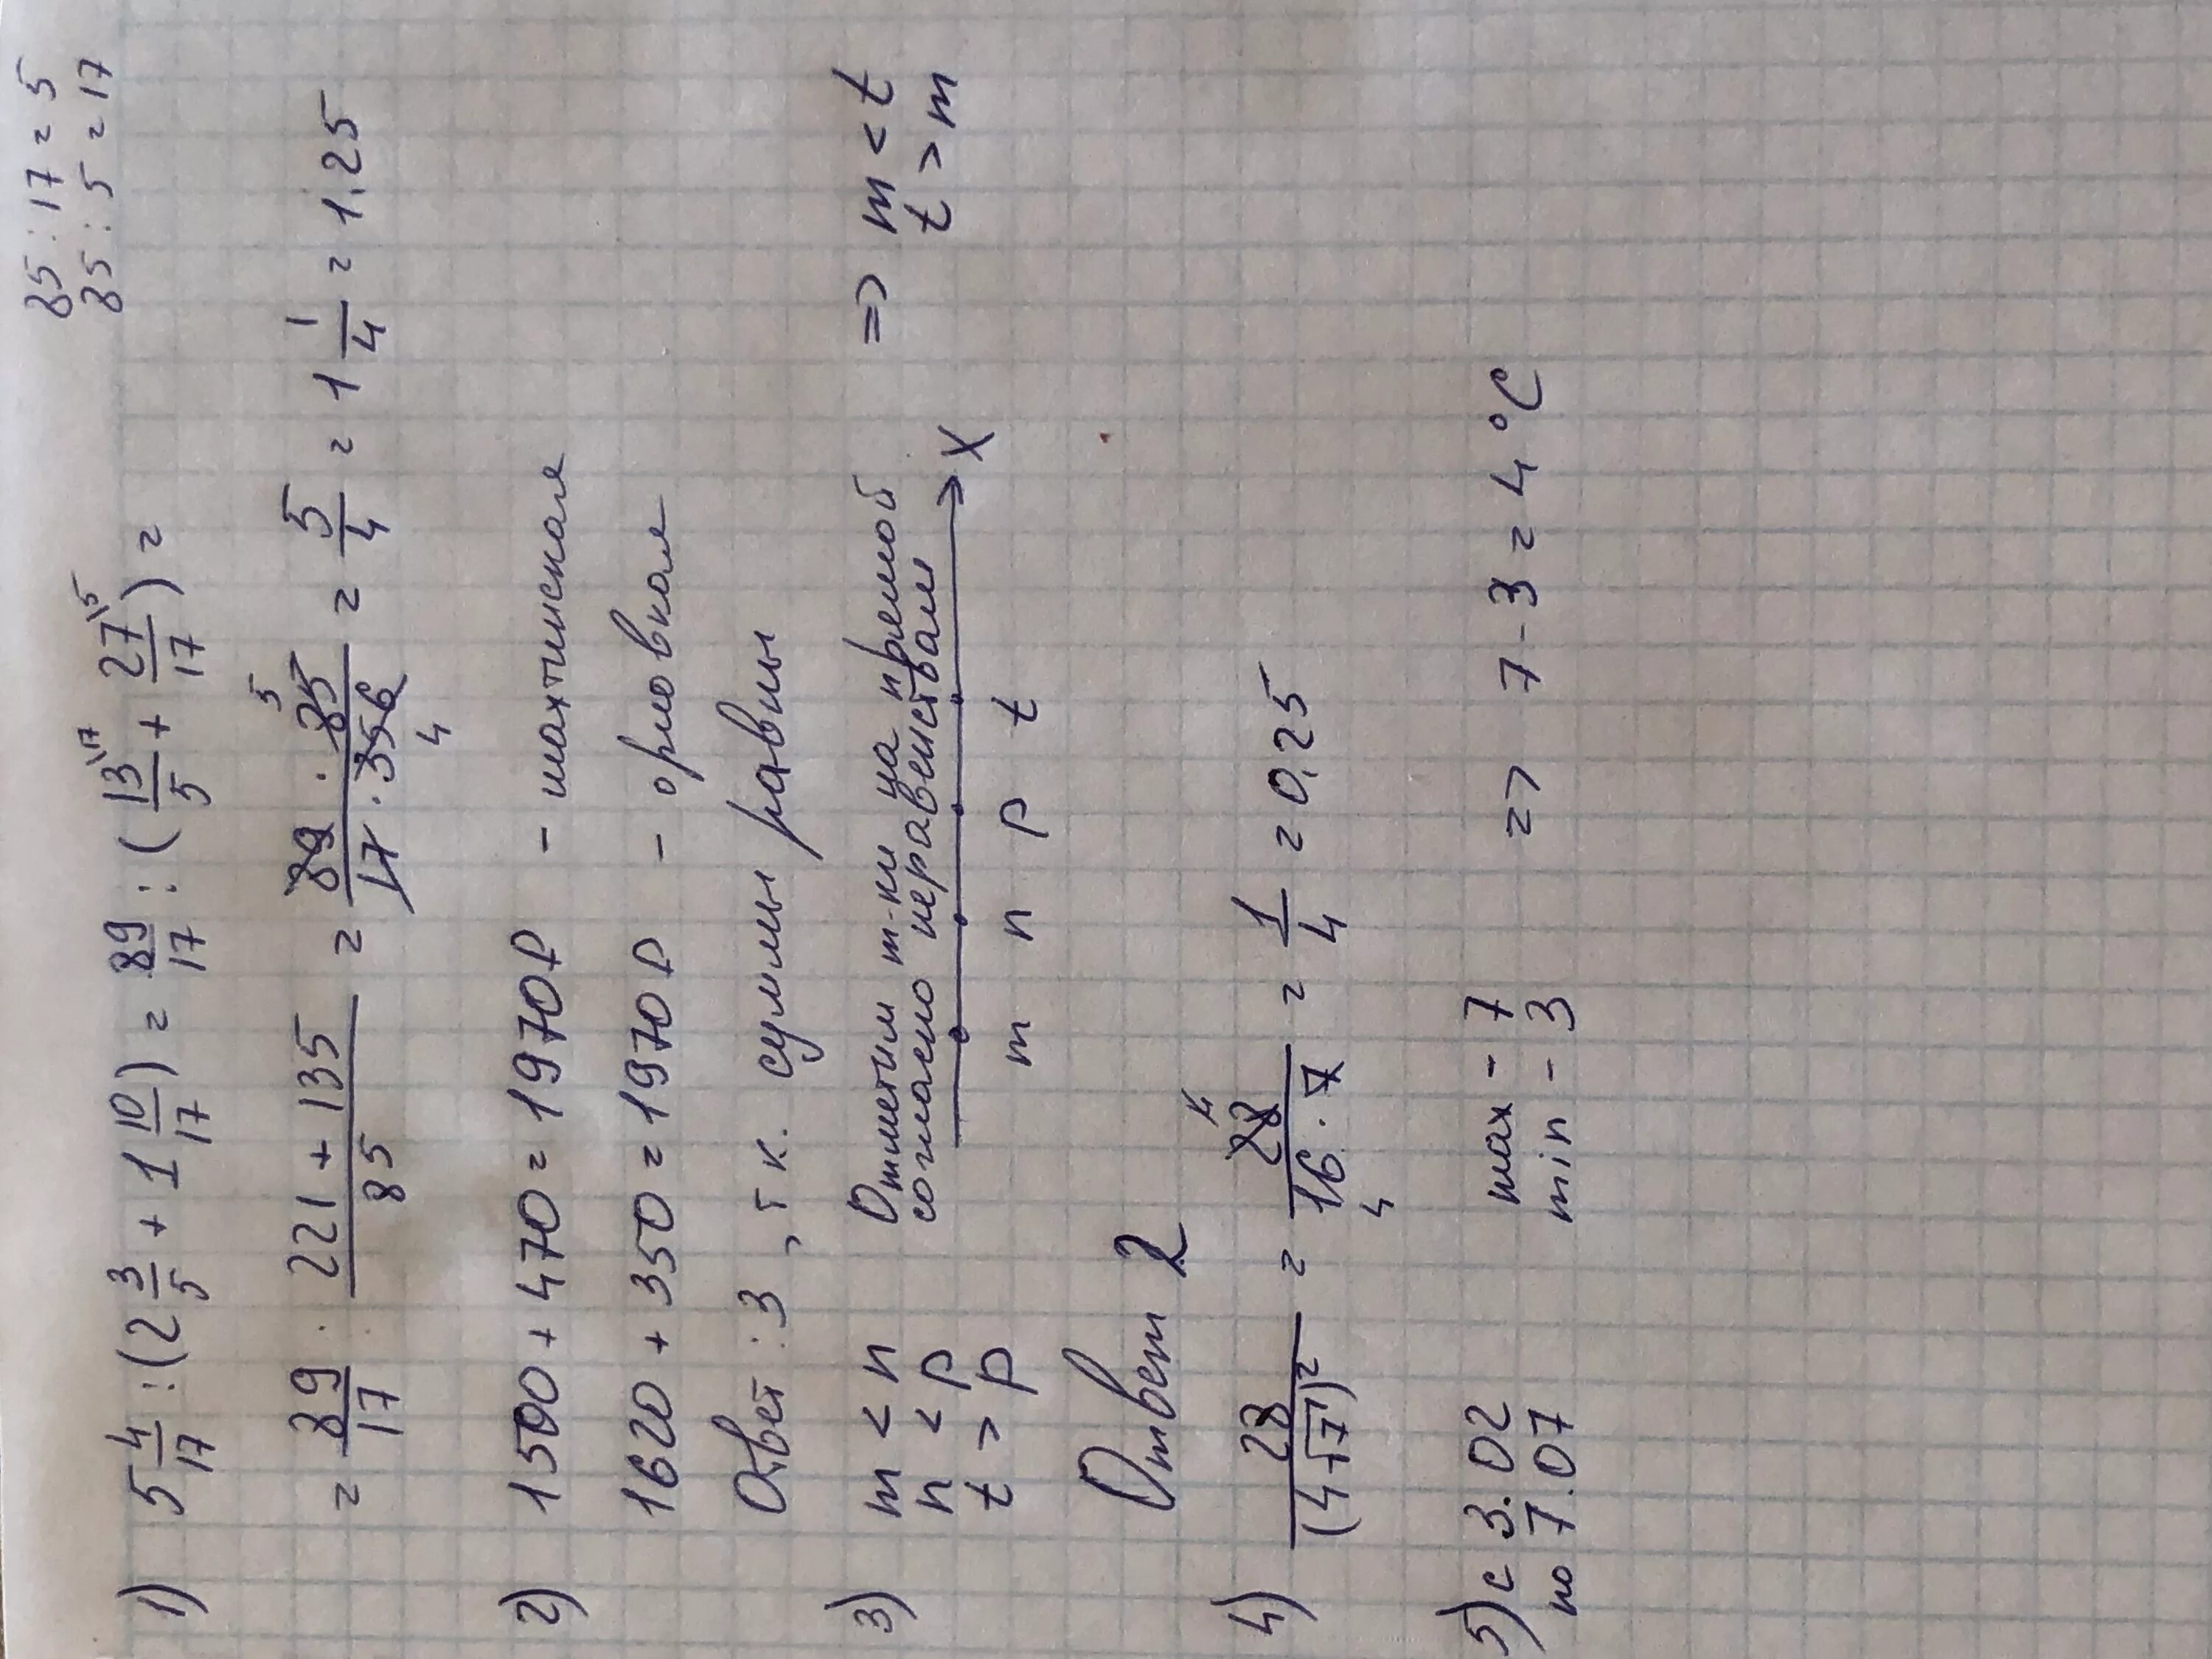 85 : 17 = 5
85 : 5 = 17
1) 5 4/17 : (2 3/5 + 1 10/17) = 89/17 : (13\17/5 + 27\5/17) =
= 89/17 · 221 + 135/85 = 89 · 85 5/17 · 356 4 = 5/4 = 1 1/4 = 1.25
2) 1500 + 470 = 1970 Р - шахтинская
1620 + 350 = 1970 Р - орловская
Ответ : 3 , т к. суммы равны
3) m < n Отметим т-ки на прямой => m < t
n < p согласно неравенствам t > m
t > p
X
m n p t
Ответ 2
4) 28/(4√7)² = 28 4/16 · 7 4 = 1/4 = 0.25
5) с 3.02 max - 7 => 7 - 3 = 4 °C
по 7.07 min - 3